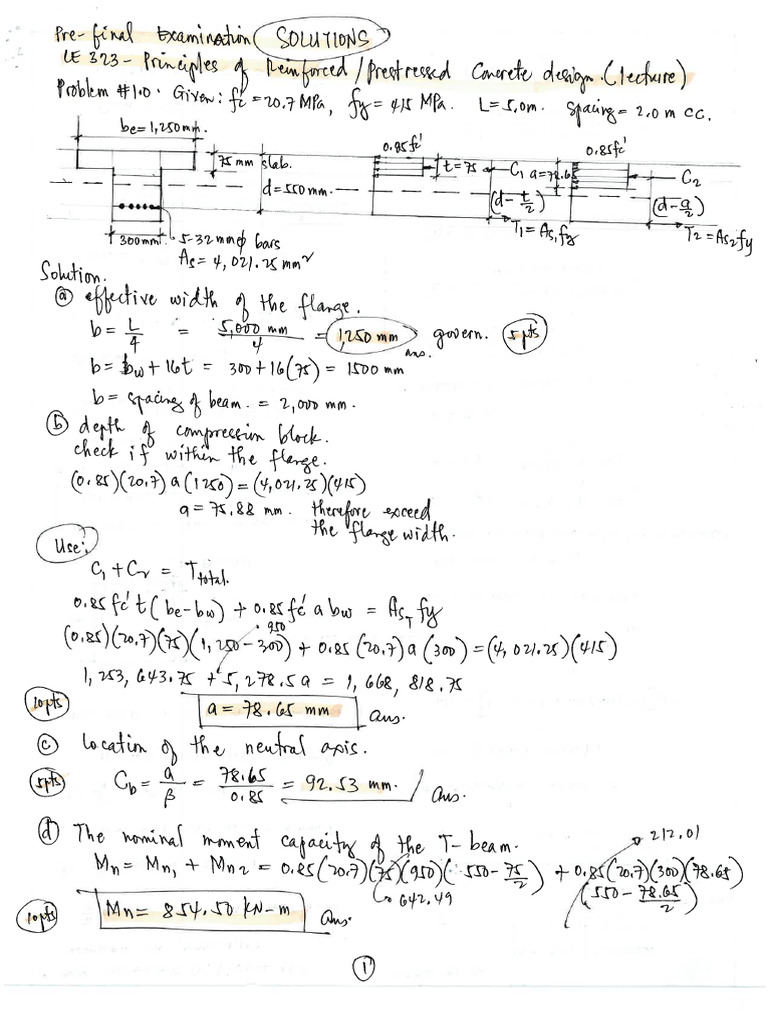 Pre-final Examination SOLUTIONS
CE 323 - Principles of Reinforced/Prestressed Concrete design. (lecture)
Problem #1.0. Given: fc' = 20.7 MPa, fy = 415 MPa. L = 5.0m. spacing = 2.0 m cc.
be = 1,250 mm.
75 mm slab.
d = 550 mm.
300mm
5-32mmφ bars
As = 4,021.25 mm²
0.85fc'
t = 75
C1
(d - t/2)
T1 = As1fy
0.85fc'
a = 78.65
C2
(d - a/2)
T2 = As2fy
Solution.
ⓐ effective width of the flange.
b = L/4 = 5,000 mm/4 = 1,250 mm govern. 5pts
ans.
b = bw + 16t = 300 + 16(75) = 1500 mm
b = spacing of beam. = 2,000 mm.
ⓑ depth of compression block.
check if within the flange.
(0.85)(20.7) a (1250) = (4,021.25)(415)
a = 75.88 mm. therefore exceed
the flange width.
Use:
C1 + C2 = Ttotal.
0.85 fc' t (be - bw) + 0.85 fc' a bw = AsT fy
950
(0.85)(20.7)(75)(1,250 - 300) + 0.85 (20.7) a (300) = (4,021.25)(415)
1,253,643.75 + 5,278.5 a = 1,668,818.75
10pts a = 78.65 mm ans.
ⓒ location of the neutral axis.
5pts Cb = a/β = 78.65/0.85 = 92.53 mm. Ans.
ⓓ The nominal moment capacity of the T-beam.
212.01
Mn = Mn1 + Mn2 = 0.85(20.7)(75)(950)(550 - 75/2) + 0.85(20.7)(300)(78.65)
(550 - 78.65/2)
642.49
10pts Mn = 854.50 kN-m Ans.
1